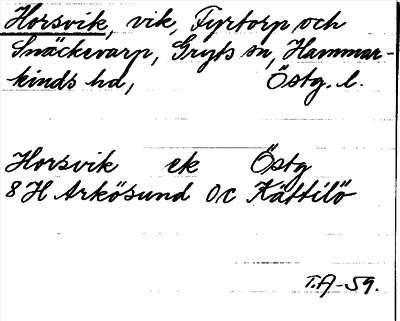 Horsvik, vik, Fyrtorp och
Snäckevarp, Gryts sn, Hammar-
kinds hd, Östg. l.
Horsvik ek Östg
8 H Arkösund 0c Kättilö
T.A-59.